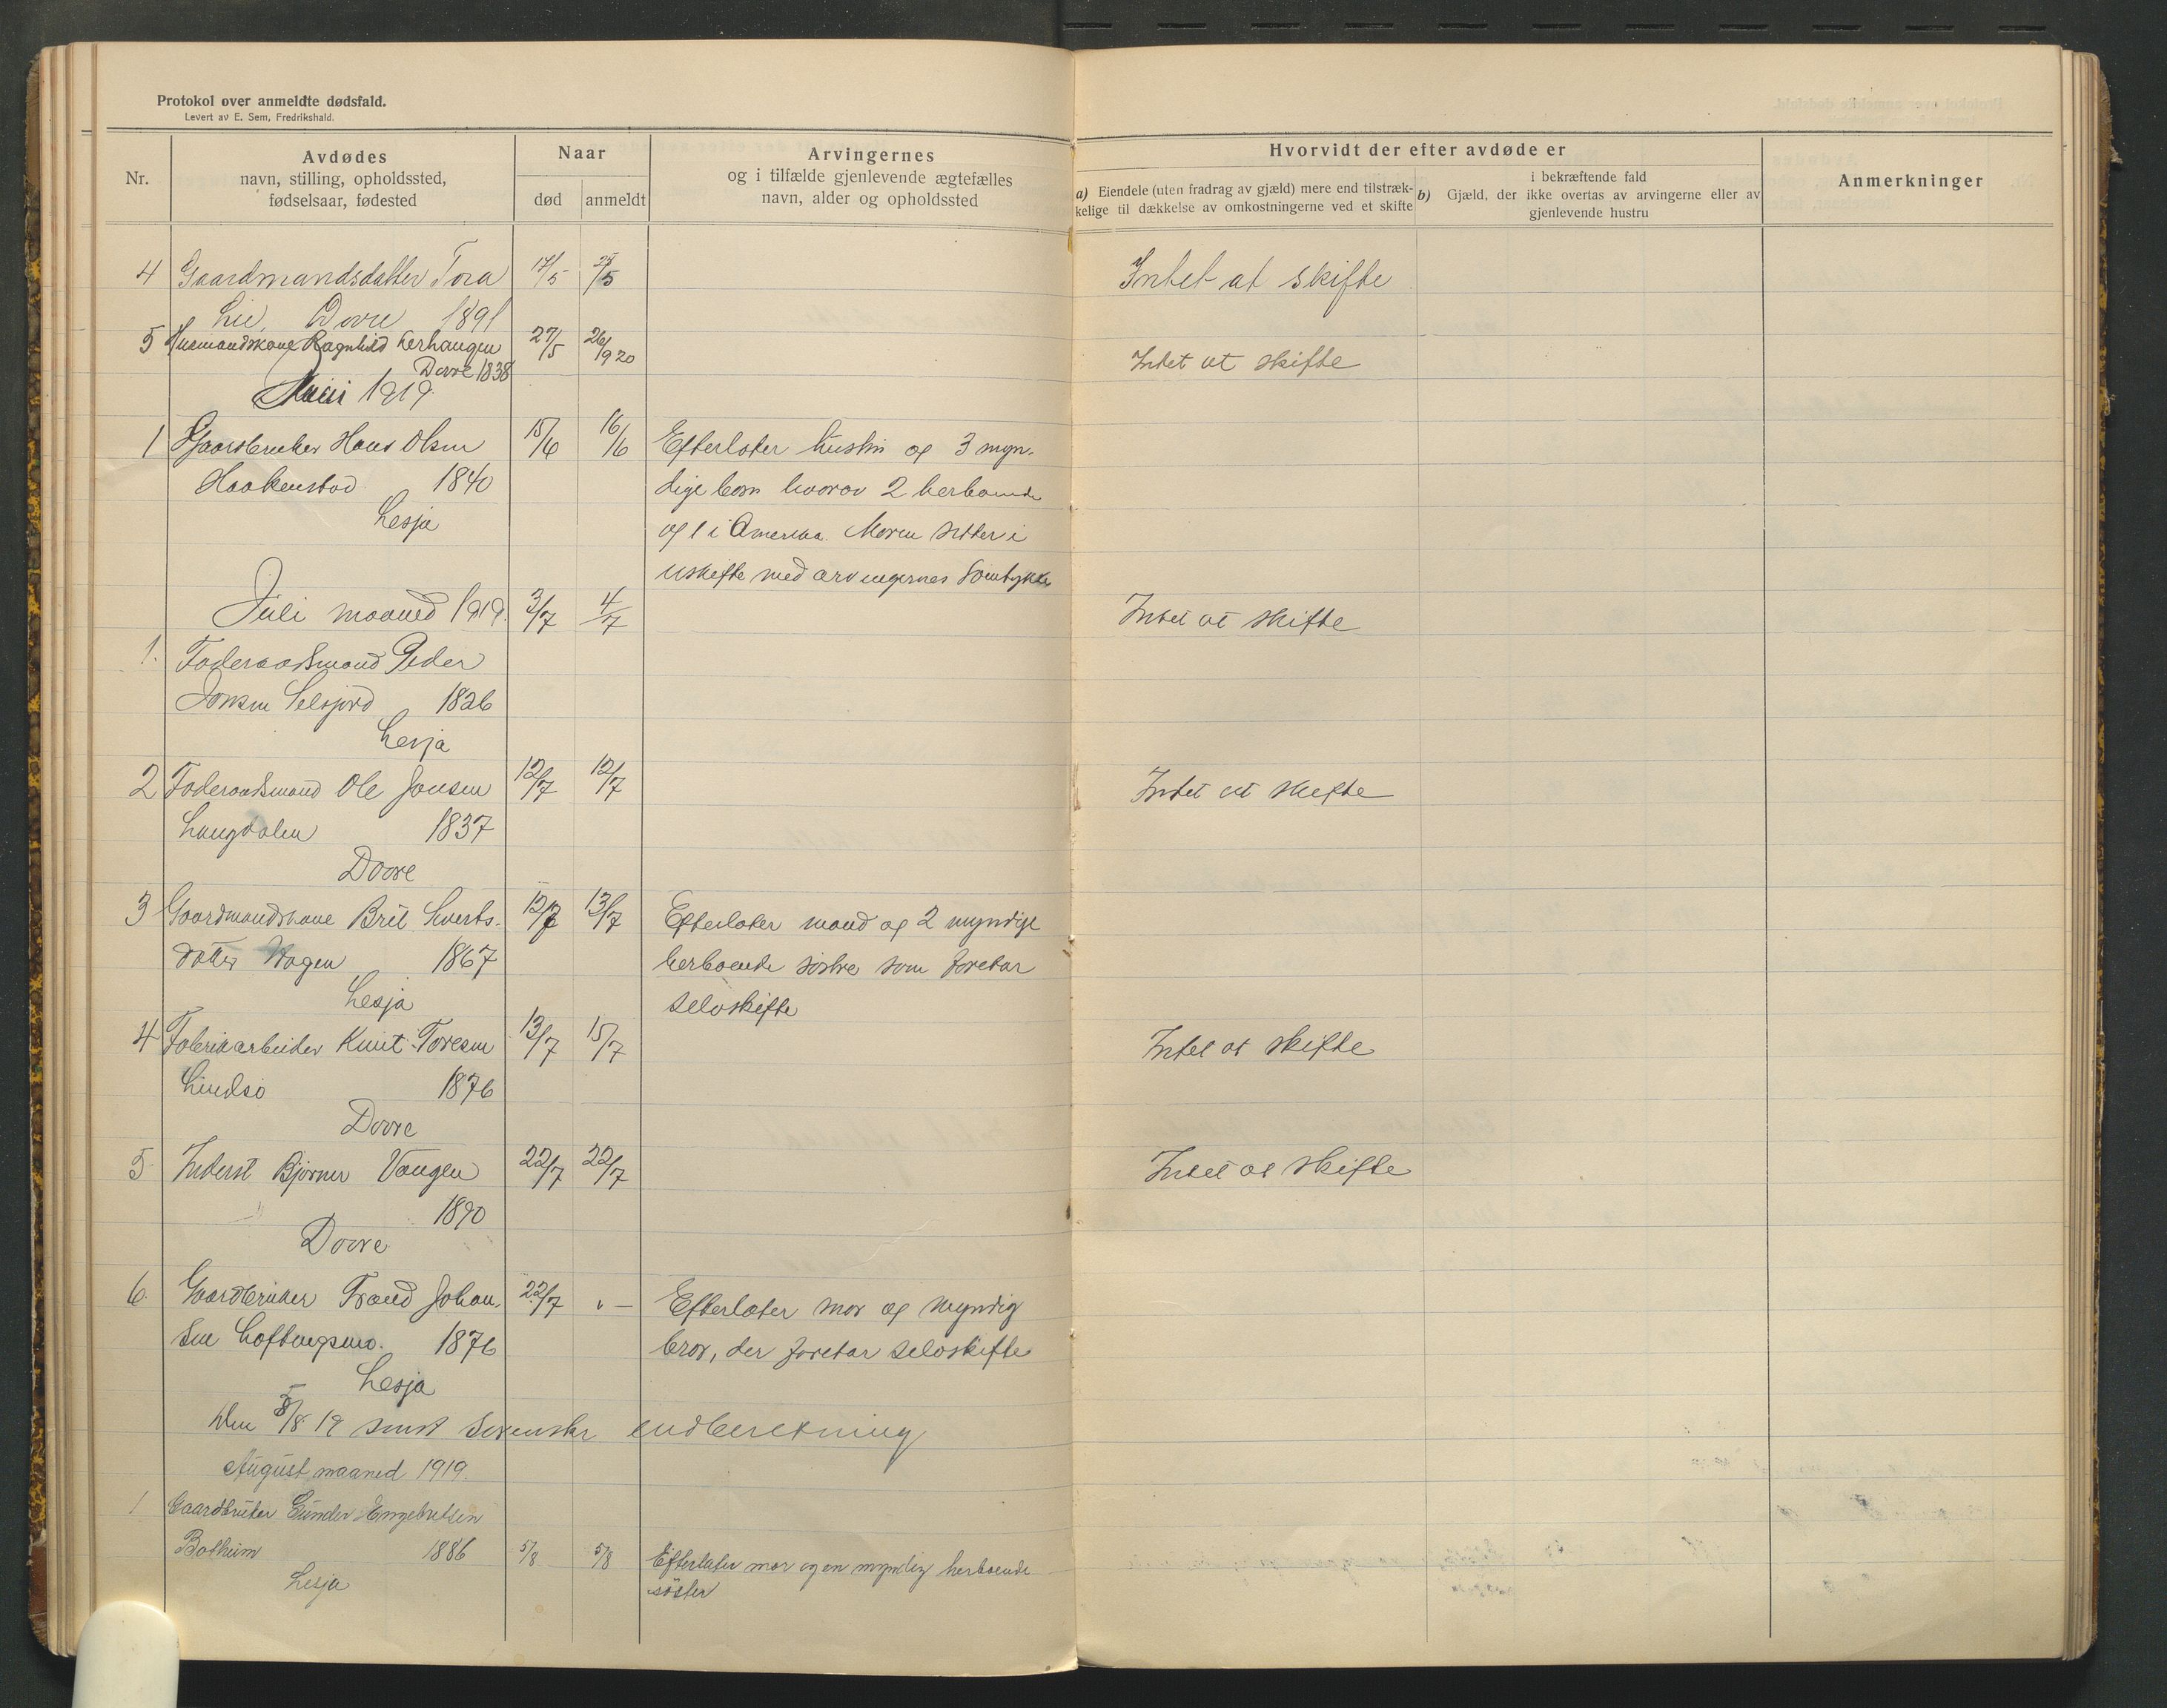 Protokol over anmeldte dødsfald.
Levert av E. Sem, Fredrikshald.
Nr.
Avdødes
navn, stilling, opholdssted,
fødselsaar, fødested
Naar
død
anmeldt
Arvingernes
og i tilfælde gjenlevende ægtefælles
navn, alder og opholdssted
Hvorvidt der efter avdøde er
a) Eiendele (uten fradrag av gjæld) mere end tilstræk-
kelige til dækkelse av omkostningerne ved et skifte
i bekræftende fald
b) Gjæld, der ikke overtas av arvingerne eller av
gjenlevende hustru
Anmerkninger
4 Gaardmandsdatter Tora 17/5 27/5 Intet at skifte
Lie, Dovre 1891
5 Husmandskone Ragnhild Lerhaugen 27/5 26/9 20 Intet at skifte
Dovre 1838
Juni 1919
1 Gaardbruker Hans Olsen 15/6 16/6 Efterlater hustru og 3 myn-
Haakenstad 1840 dige børn hvorav 2 herboende
Lesja og 1 i Amerika. Moren sitter i
uskifte med arvingernes samtykke
Juli maaned 1919. 3/7 4/7 Intet at skifte
1. Foderaadsmand Peder
Jonsen Selsjord 1826
Lesja
2 Foderaadsmand Ole Jonsen 12/7 12/7 Intet at skifte
Langdalen 1837
Dovre
3 Gaardmandskone Brit Sverts- 12/7 13/7 Efterlater mand og 2 myndige
datter Hagen 1867 herboende søstre som foretar
Lesja selvskifte
4 Fabrikarbeider Knut Toresen 13/7 15/7 Intet at skifte
Lindsø 1876
Dovre
5 Inderst Bjørner Vangen 22/7 22/7 Intet at skifte
1890
Dovre
6. Gaardbruker Trond Johan- 22/7 " — Efterlater mor og myndig
sen Loftengsmo. 1876 bror, der foretar selvskifte
Lesja
Den 5/8 19 sendt Sorenskr indberetning
August maaned 1919.
1 Gaardbruker Gunder Engebretsen
Botheim 1886 5/8 5/8 Efterlater mor og en myndig herboende
Lesja søster